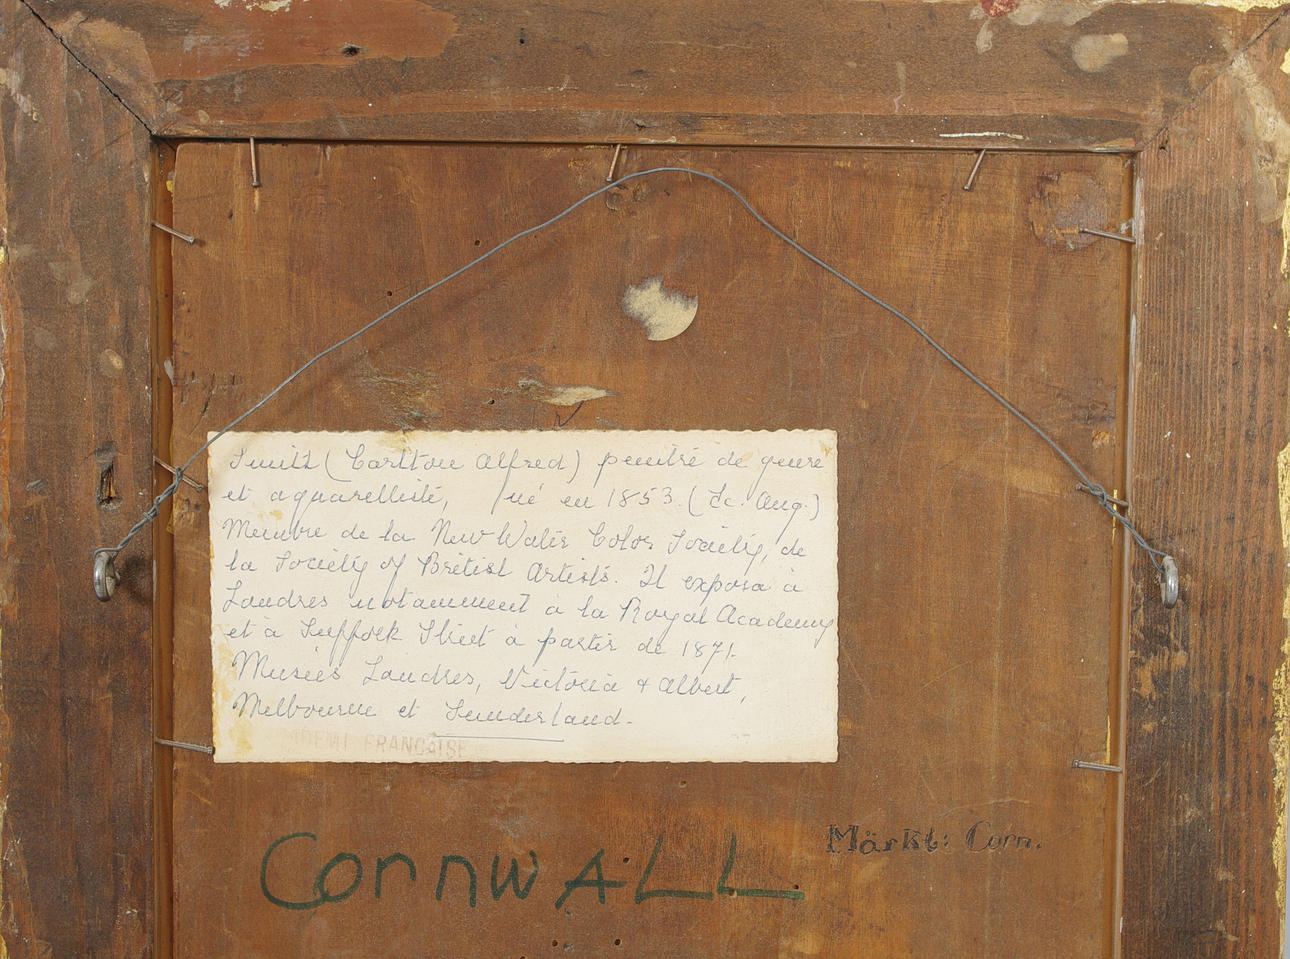 Smith (Carlton Alfred) peintre de genre
et aquarelliste, né en 1853. (Ec. Ang.)
Membre de la New Water Color Society, de
la Society of British Artists. Il exposa à
Londres notamment à la Royal Academy
et à Suffolk Street à partir de 1871.
Musées Londres, Victoria & Albert,
Melbourne et Sunderland.
DEMI FRANÇAISE
Cornwall
Märkt: Corn.